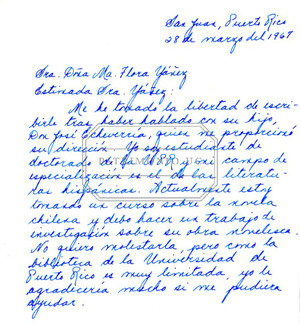 San Juan, Puerto Rico
28 de marzo del 1967
Sra. Doña Ma. Flora Yáñez
Estimada Sra. Yáñez:
Me he tomado la libertad de escri-
birle tras haber hablado con su hijo,
Don José Echeverría, quien me proporcionó
su direción. Yo soy estudiante de
doctorado de la U.P.R. y mi campo de
especialización es el de las literatu-
ras hispánicas. Actualmente estoy
tomando un curso sobre la novela
chilena y debo hacer un trabajo de
investigación sobre su obra novelesca.
No quiero molestarla, pero como la
biblioteca de la Universidad de
Puerto Rico es muy limitada, yo le
agradecería mucho si me pudiera
ayudar.